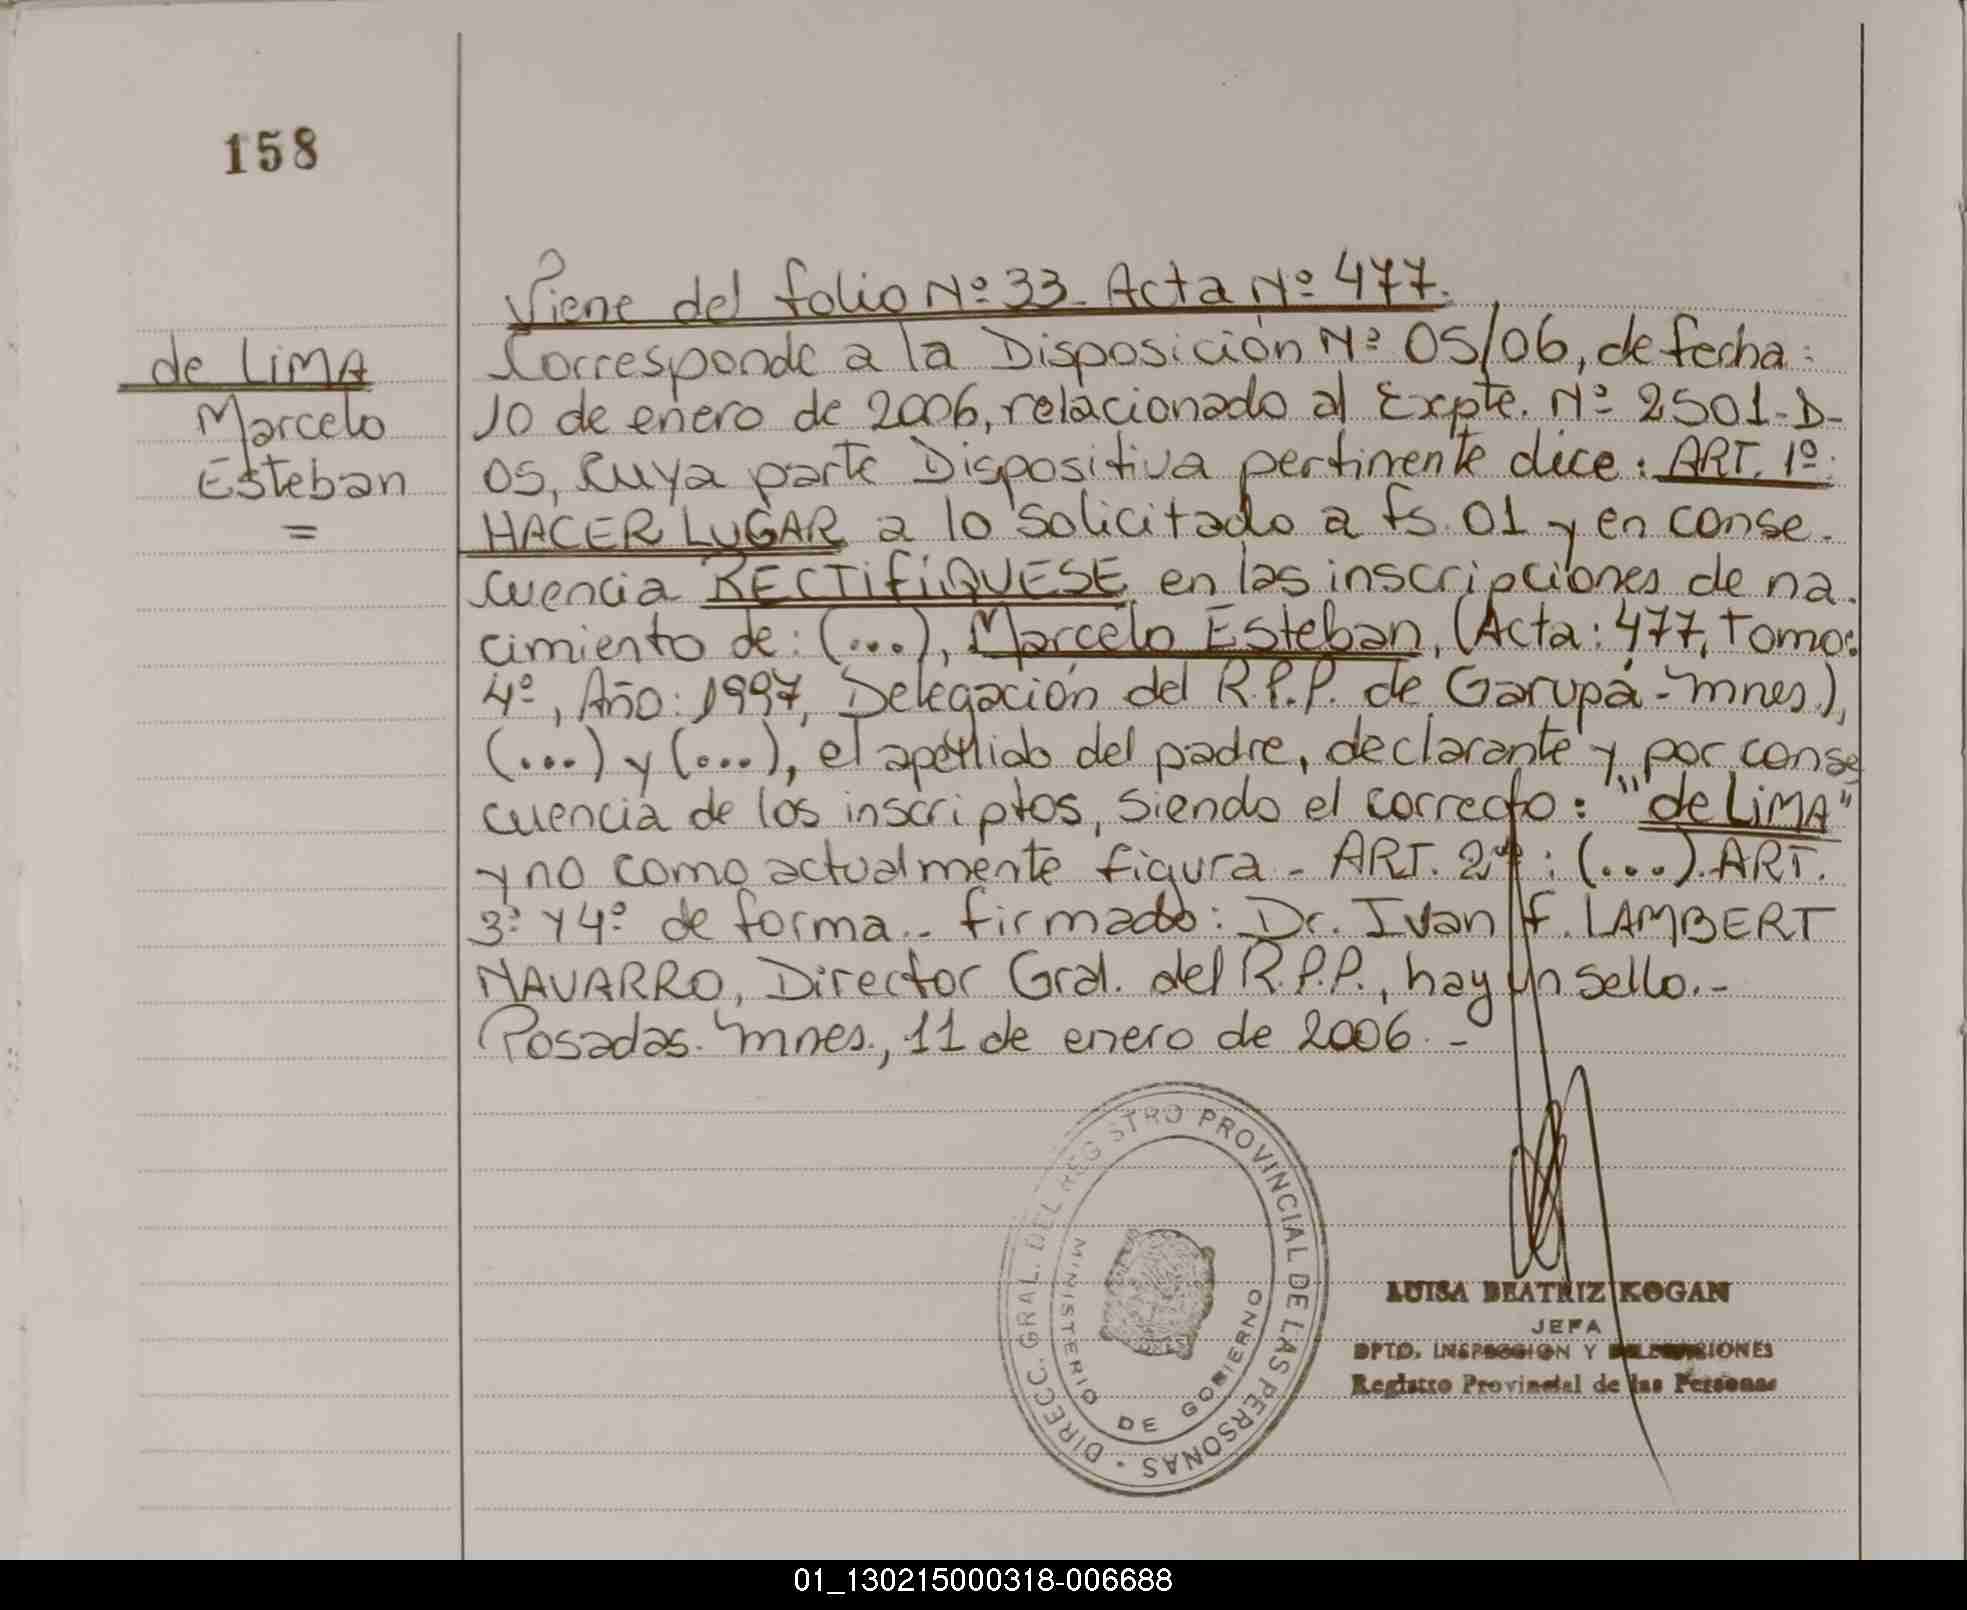 158
de LiMA
Marcelo
Esteban
=
Viene del folio Nº 33 - Acta Nº 477.
Corresponde a la Disposición Nº 05/06, de fecha:
10 de enero de 2006, relacionado al Expte. Nº 2501-D-
05, Cuya parte Dispositiva pertinente dice: ART. 1º:
HACER LUGAR a lo solicitado a fs. 01 y en conse-
cuencia RECTIFíQUESE en las inscripciones de na-
cimiento de: (...), Marcelo Esteban, (Acta: 477, Tomo:
4º, Año: 1997, Delegación del R.P.P. de Garupá - Mnes.),
(...) y (...), el apellido del padre, declarante y por conse
cuencia de los inscriptos, siendo el correcto: "de LiMA"
y no como actualmente figura - ART. 2º: (...). ART.
3º y 4º de forma.- firmado: Dr. Ivan F. LAMBERT
NAVARRO, Director Gral. del R.P.P., hay un sello.-
Posadas. Mnes., 11 de enero de 2006.-
DIRECC. GRAL. DEL REGISTRO PROVINCIAL DE LAS PERSONAS
MINISTERIO DE GOBIERNO
LUISA BEATRIZ KOGAN
JEFA
DPTO. INSPECCION Y
Registro Provincial de las Personas
01_130215000318-006688